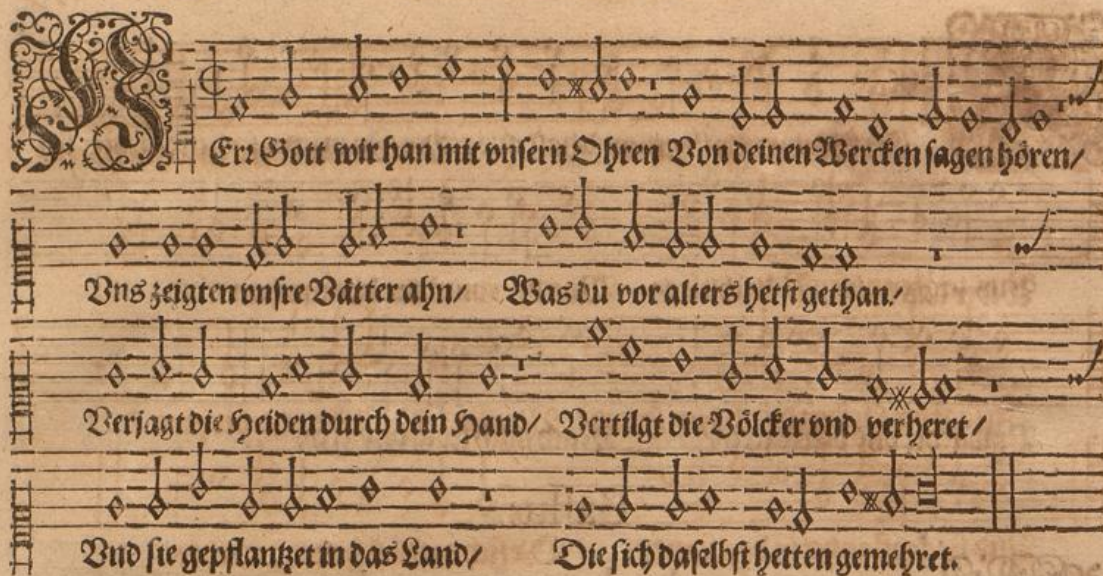 HErr Gott wir han mit vnsern Ohren Von deinen Wercken sagen hören/
Vns zeigten vnsre Vätter ahn/ Was du vor alters hetst gethan/
Verjagt die Heiden durch dein Hand/ Vertilgt die Völcker vnd verheret/
Vnd sie gepflantzet in das Land/ Die sich daselbst hetten gemehret.